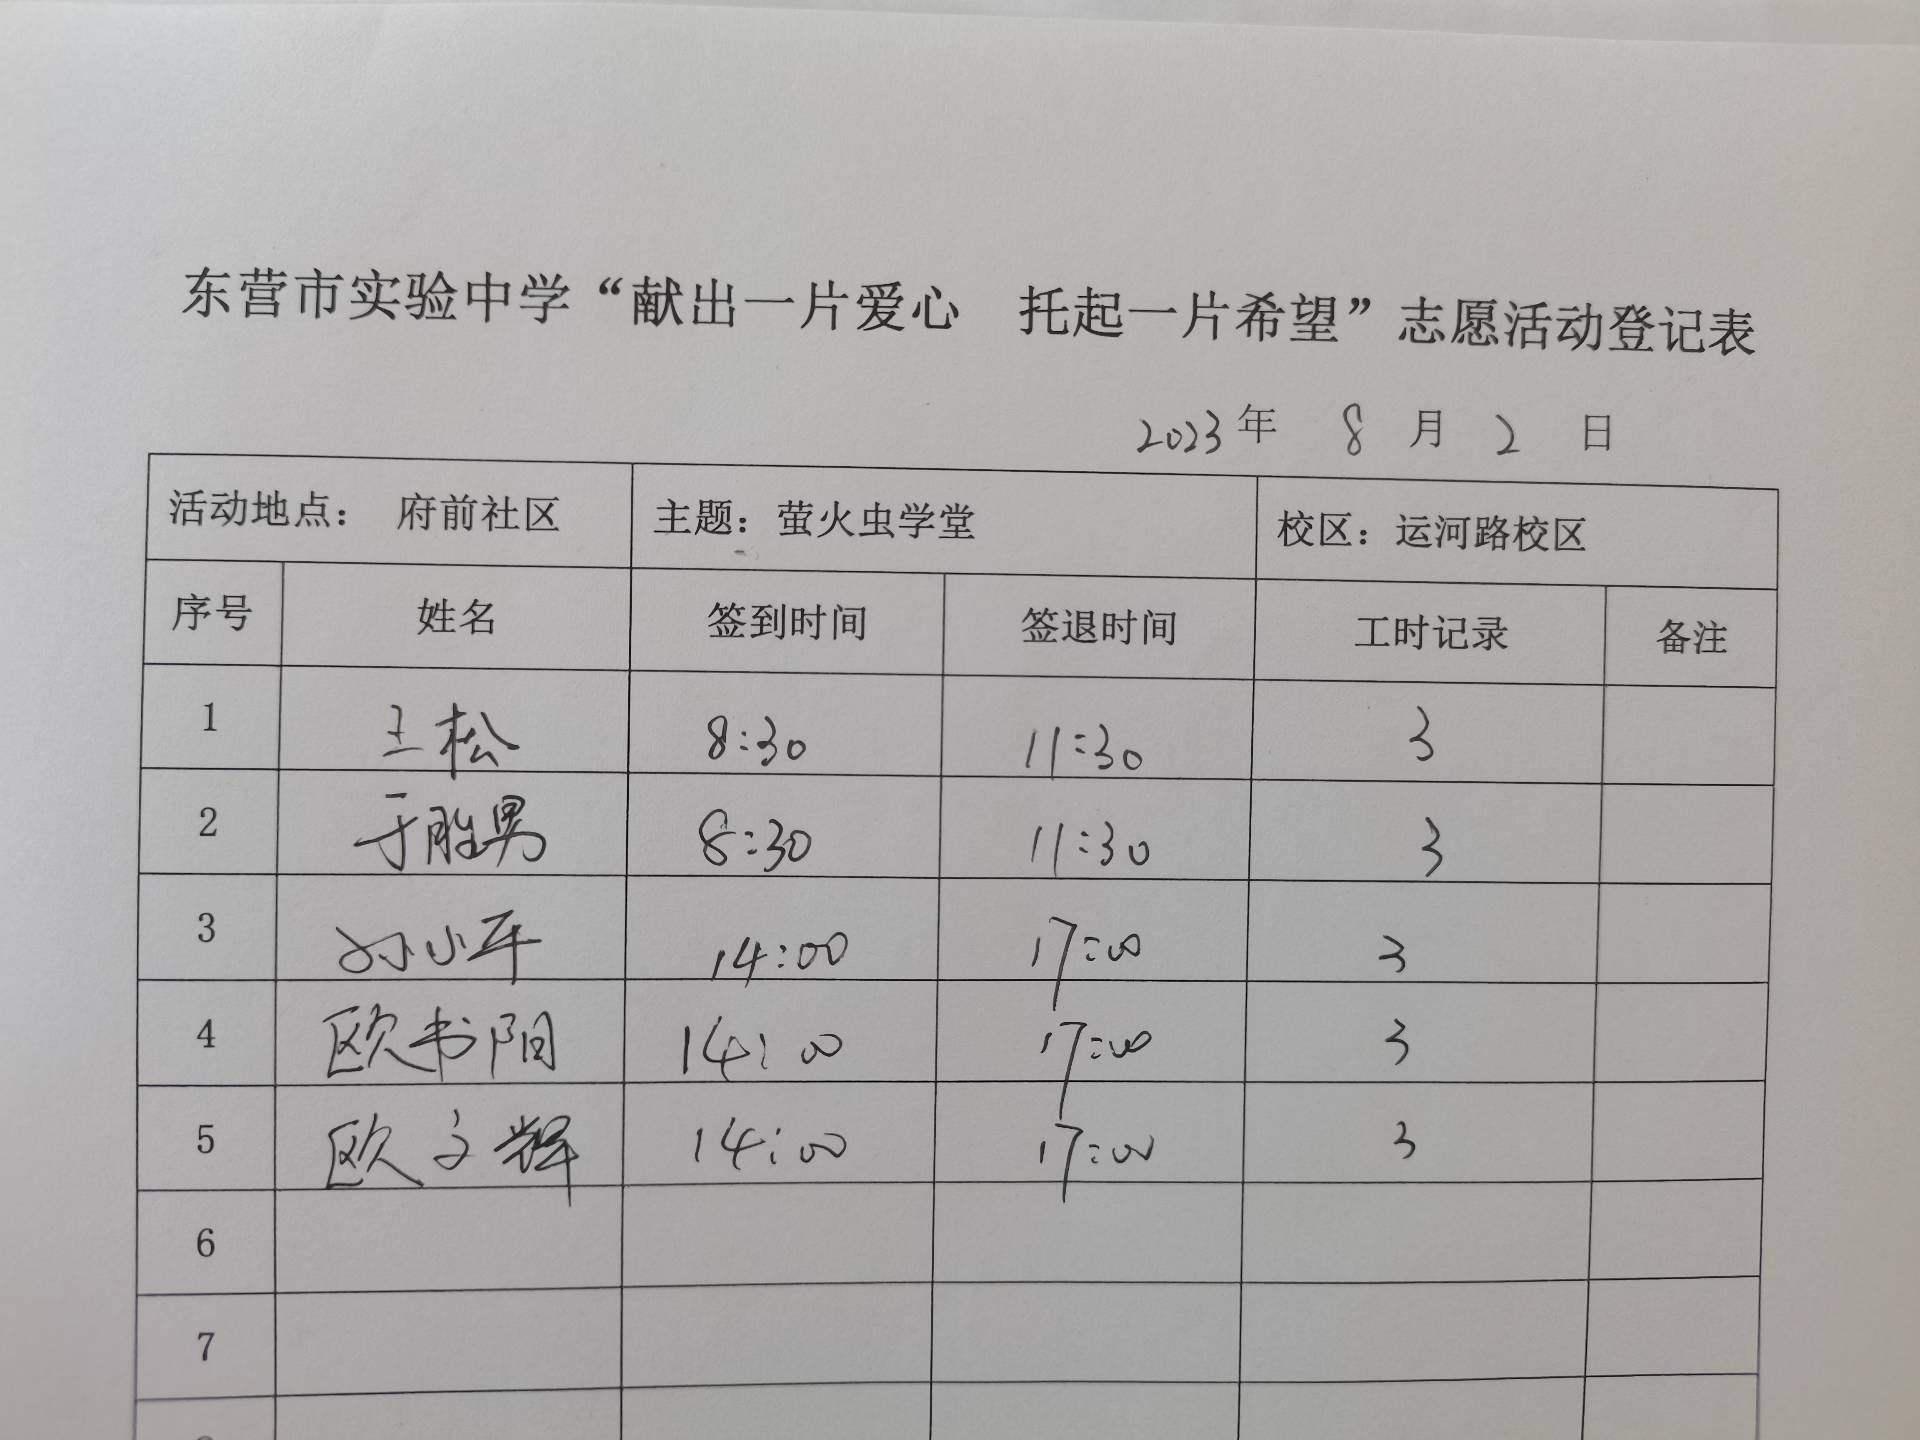 东营市实验中学“献出一片爱心　托起一片希望”志愿活动登记表
2023年 8 月 2 日
活动地点： 府前社区 主题：萤火虫学堂 校区：运河路校区
序号 姓名 签到时间 签退时间 工时记录 备注
1 王松 8:30 11:30 3
2 于胜男 8:30 11:30 3
3 孙小平 14:00 17:00 3
4 欧书阳 14:00 17:00 3
5 欧文辉 14:00 17:00 3
6
7